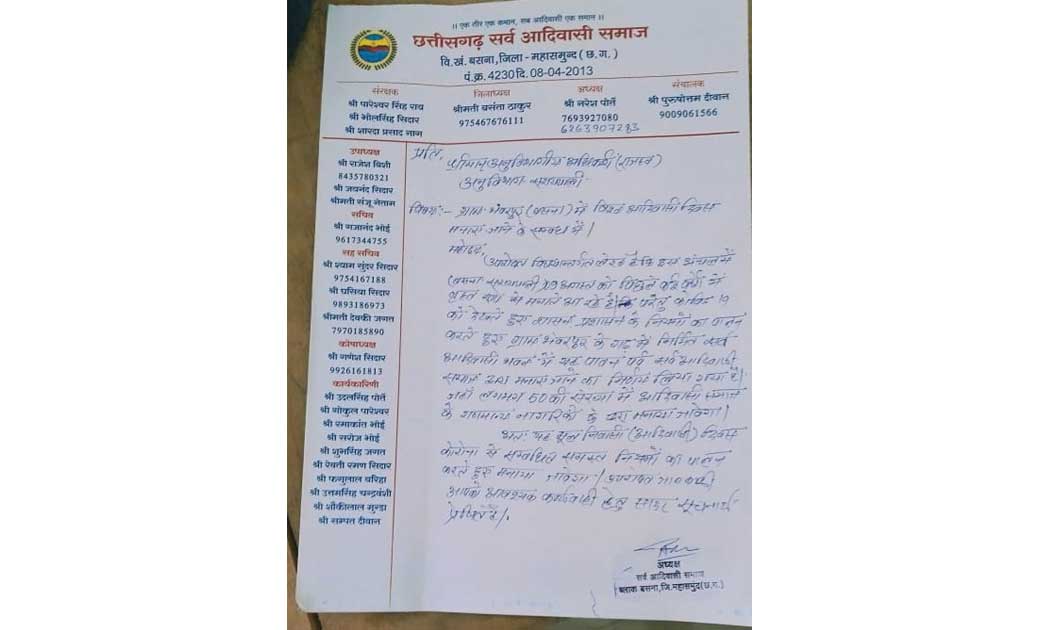 ।। एक तीर एक कमान, सब आदिवासी एक समान ।।
छत्तीसगढ़ सर्व आदिवासी समाज
वि.खं. बसना, जिला - महासमुन्द (छ.ग.)
पं.क्र. 4230 दि. 08-04-2013
संरक्षक
श्री पारेश्वर सिंह राव
श्री भोलसिंह सिदार
श्री शारदा प्रसाद नाग
जिलाध्यक्ष
श्रीमती बसंता ठाकुर
975467676111
अध्यक्ष
श्री नरेश पोर्ते
7693927080
6263907283
संचालक
श्री पुरुषोत्तम दीवान
9009061566
उपाध्यक्ष
श्री राजेश बिशी
8435780321
श्री जयनंद सिदार
श्रीमती संजू नेताम
सचिव
श्री गजानंद भोई
9617344755
सह सचिव
श्री श्याम सुंदर सिदार
9754167188
श्री घसिया सिदार
9893186973
श्रीमती देवकी जगत
7970185890
कोषाध्यक्ष
श्री गणेश सिदार
9926161813
कार्यकारिणी
श्री उदलसिंह पोर्ते
श्री गोकुल पारेश्वर
श्री रमाकांत भोई
श्री सरोज भोई
श्री शुभसिंह जगत
श्री रेवती रमण सिदार
श्री फगुलाल बरिहा
श्री उत्तमसिंह चन्द्रवंशी
श्री शौकीलाल मुन्डा
श्री सम्पत दीवान
प्रति,
श्रीमान् अनुविभागीय अधिकारी (राजस्व)
अनुविभाग - सरायपाली
विषय :- ग्राम भंवरपुर (बसना) में विश्व आदिवासी दिवस
मनाए जाने के सम्बंध में।
महोदय,
उपरोक्त विषयान्तर्गत लेख है कि इस अंचल में
(बसना सरायपाली) 9 अगस्त को पिछले कई वर्षों से
रूप से मनाते आ रहे है परंतु कोविड 19
को देखते हुए शासन प्रशासन के नियमों का पालन
करते हुए ग्राम भंवरपुर के गढ़ में निर्मित सर्व
आदिवासी भवन में यह पावन पर्व सर्व आदिवासी
समाज द्वारा मनाए जाने का निर्णय लिया गया है।
जहाँ लगभग 50 की संख्या में आदिवासी समाज
के गणमान्य नागरिकों के द्वारा मनाया जावेगा।
अतः यह मूल निवासी (आदिवासी) दिवस
कोरोना से सम्बंधित समस्त नियमों का पालन
करते हुए मनाया जावेगा। उपरोक्त
आपको आवश्यक कार्यवाही हेतु सादर सूचनार्थ
प्रेषित है।
अध्यक्ष
सर्व आदिवासी समाज
ब्लाक बसना, जि. महासमुंद (छ.ग.)